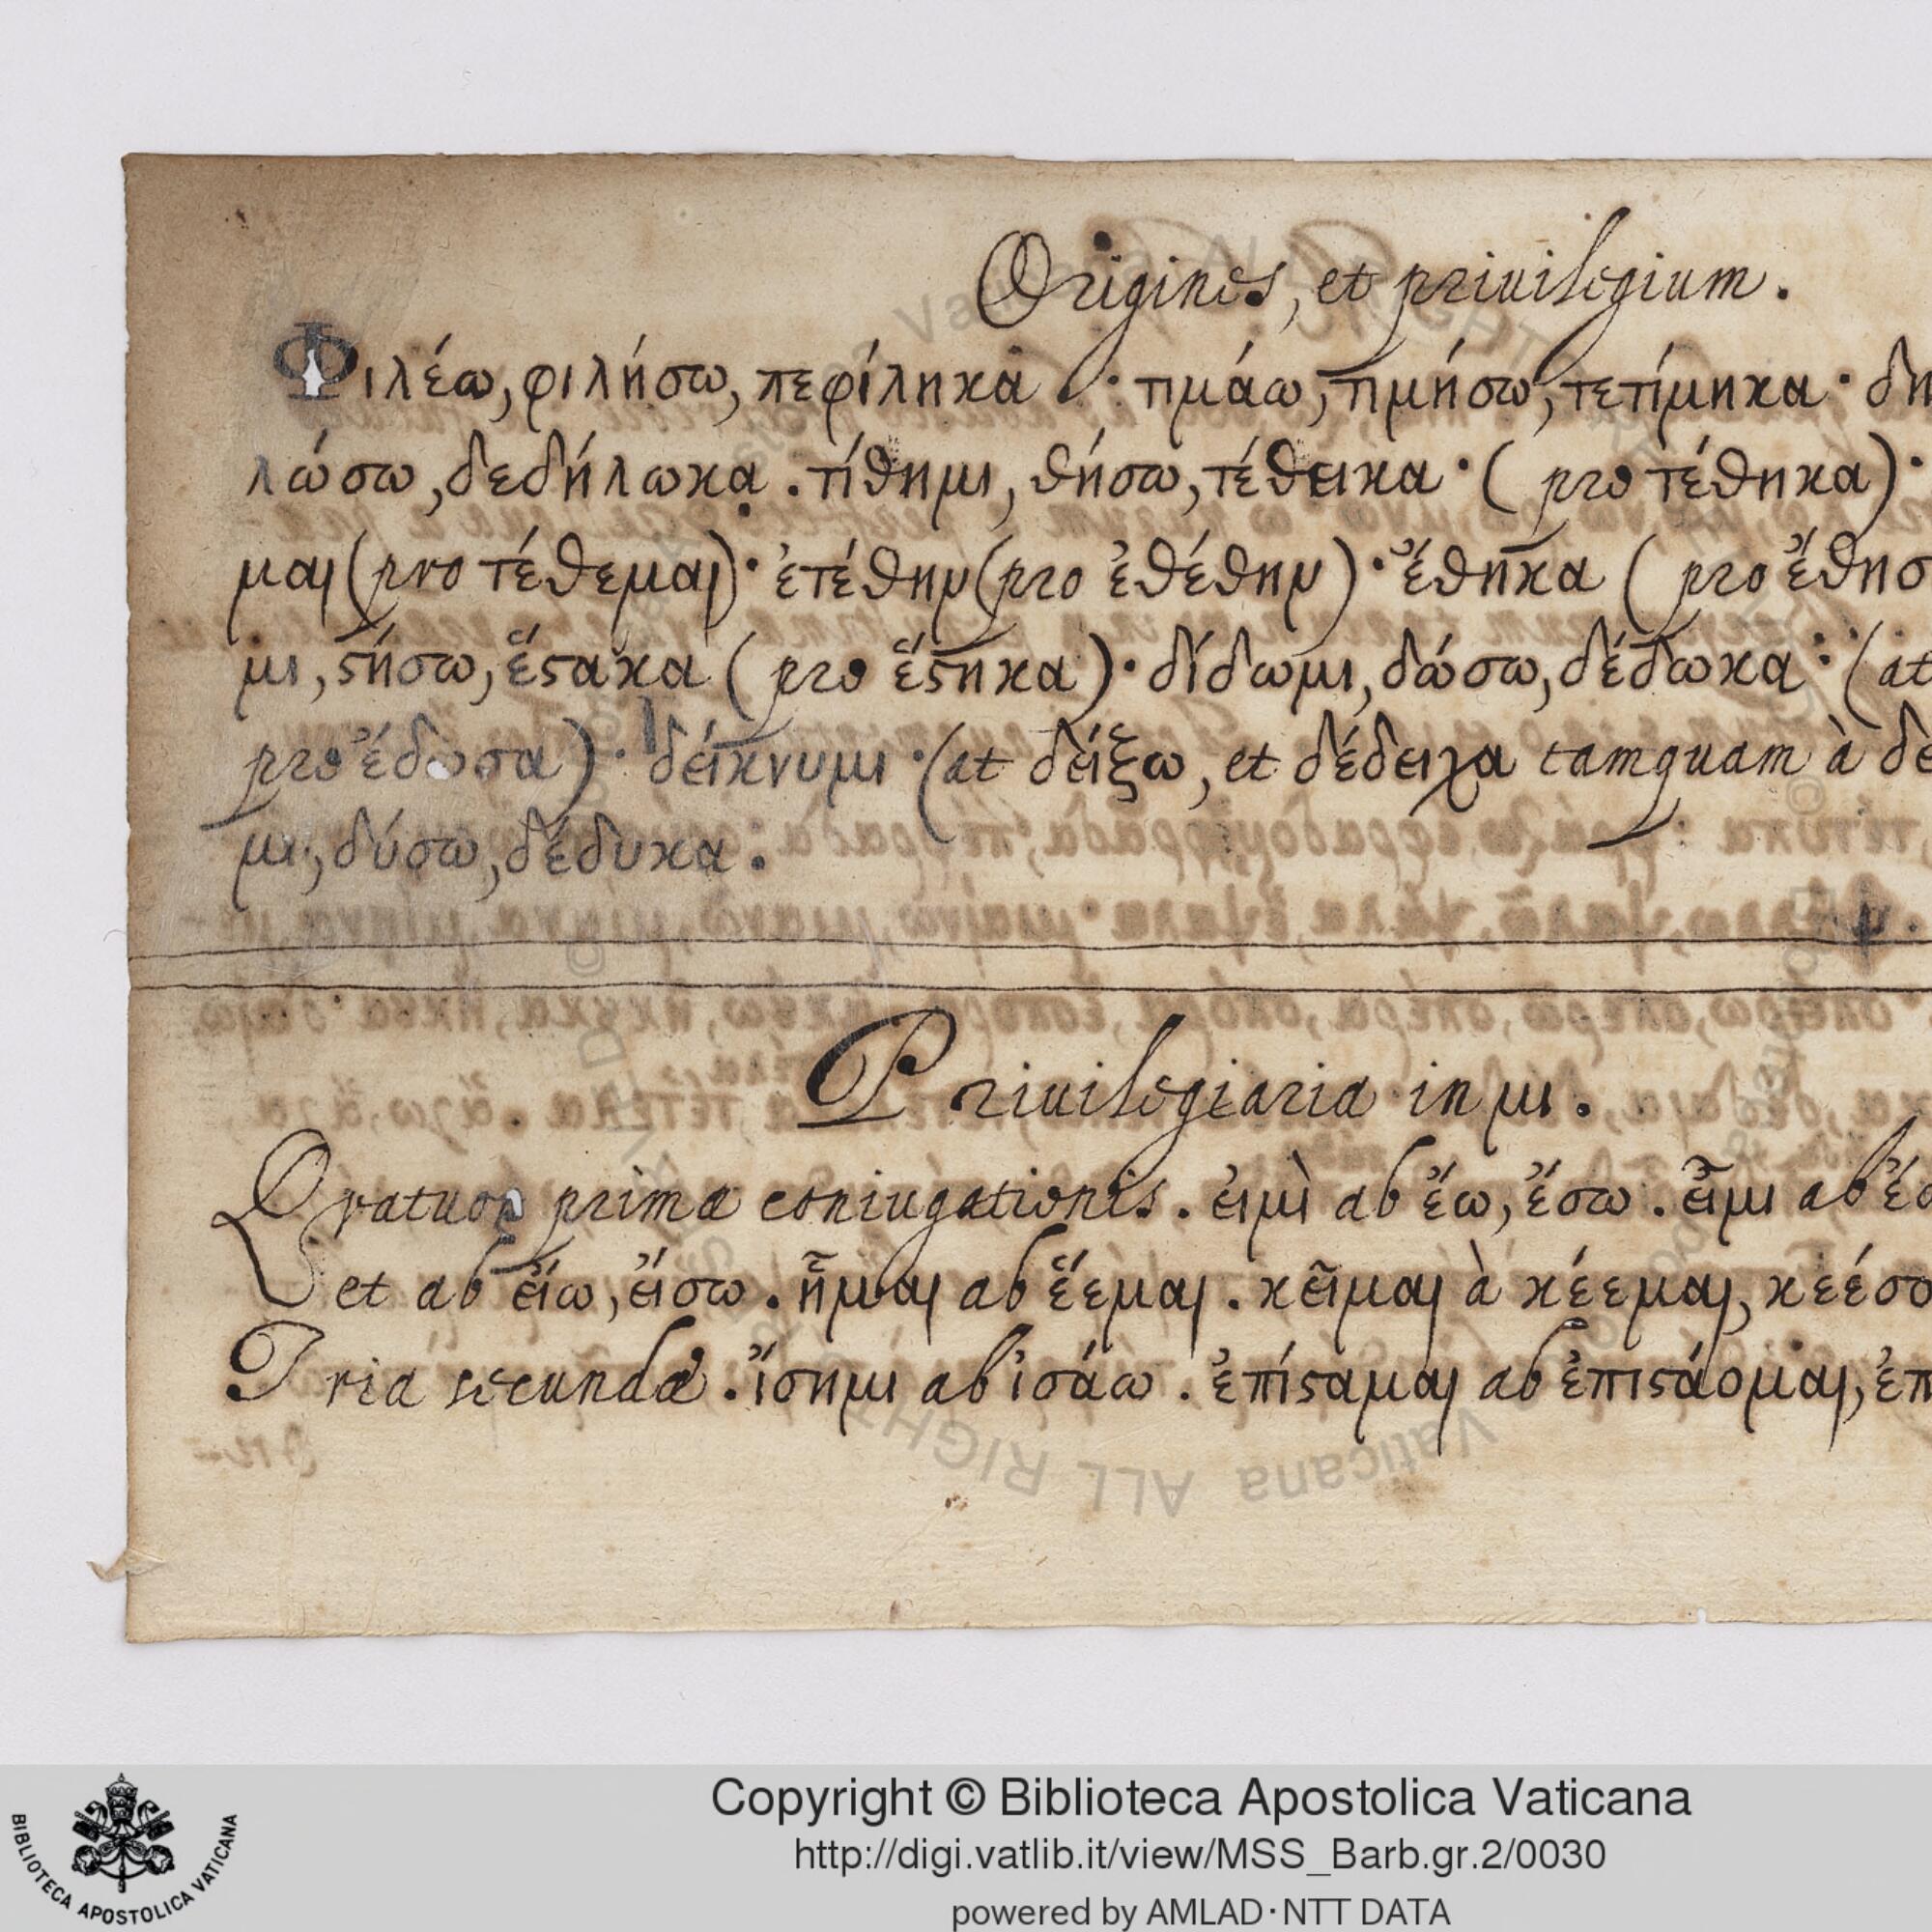 Origines, et priuilegium.
Φιλέω, φιλήσω, πεφίληκα : τιμάω, τιμήσω, τετίμηκα · δη
λώσω, δεδήλωκα . τίθημι, θήσω, τέθεικα · ( pro τέθηκα) ·
μαι (pro τέθεμαι) · ἐτέθην (pro ἐθέθην) · ἔθηκα ( pro ἔθησ
μι, ϛήσω, ἕϛακα ( pro ἕϛηκα) · δίδωμι, δώσω, δέδωκα : (at
pro ἔδωσα) · δείκνυμι · (at δείξω, et δέδειχα tamquam à δε
μι, δύσω, δέδυκα :
Priuilegiaria in μι .
Quatuor primæ coniugationis . εἰμὶ ab ἔω, ἔσω . εἶμι ab ἐ
et ab εἴω, εἴσω . ἧμαι ab ἕεμαι . κεῖμαι à κέεμαι, κεέσο
Tria secundæ . ἴσημι ab ἰσάω . ἐπίϛαμαι ab ἐπιϛάομαι, ἐπ
Copyright © Biblioteca Apostolica Vaticana
http://digi.vatlib.it/view/MSS_Barb.gr.2/0030
powered by AMLAD·NTT DATA
BIBLIOTECA APOSTOLICA VATICANA